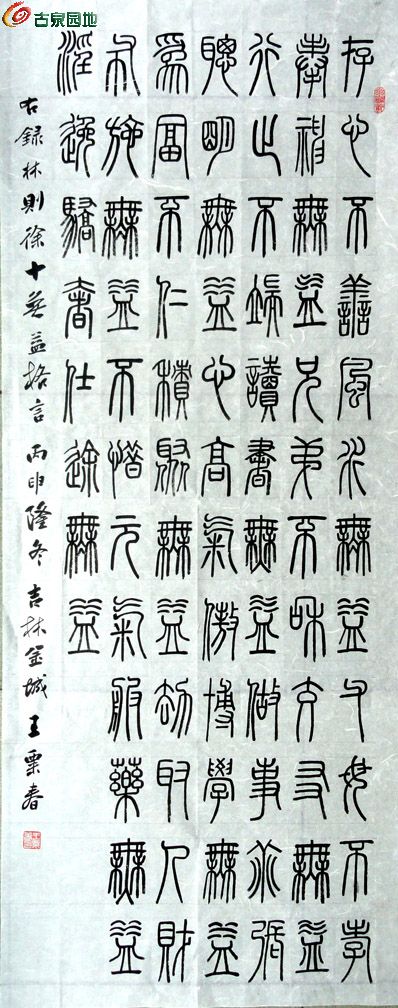 古泉园地
存心不善風水無益父母不孝
奉神無益兄弟不和交友無益
行止不端讀書無益做事乖張
聰明無益心高氣傲博學無益
為富不仁積聚無益劫取人財
布施無益不惜元氣服藥無益
淫逸驕奢仕途無益
右録林則徐十無益格言 丙申隆冬 吉林金城王粟春